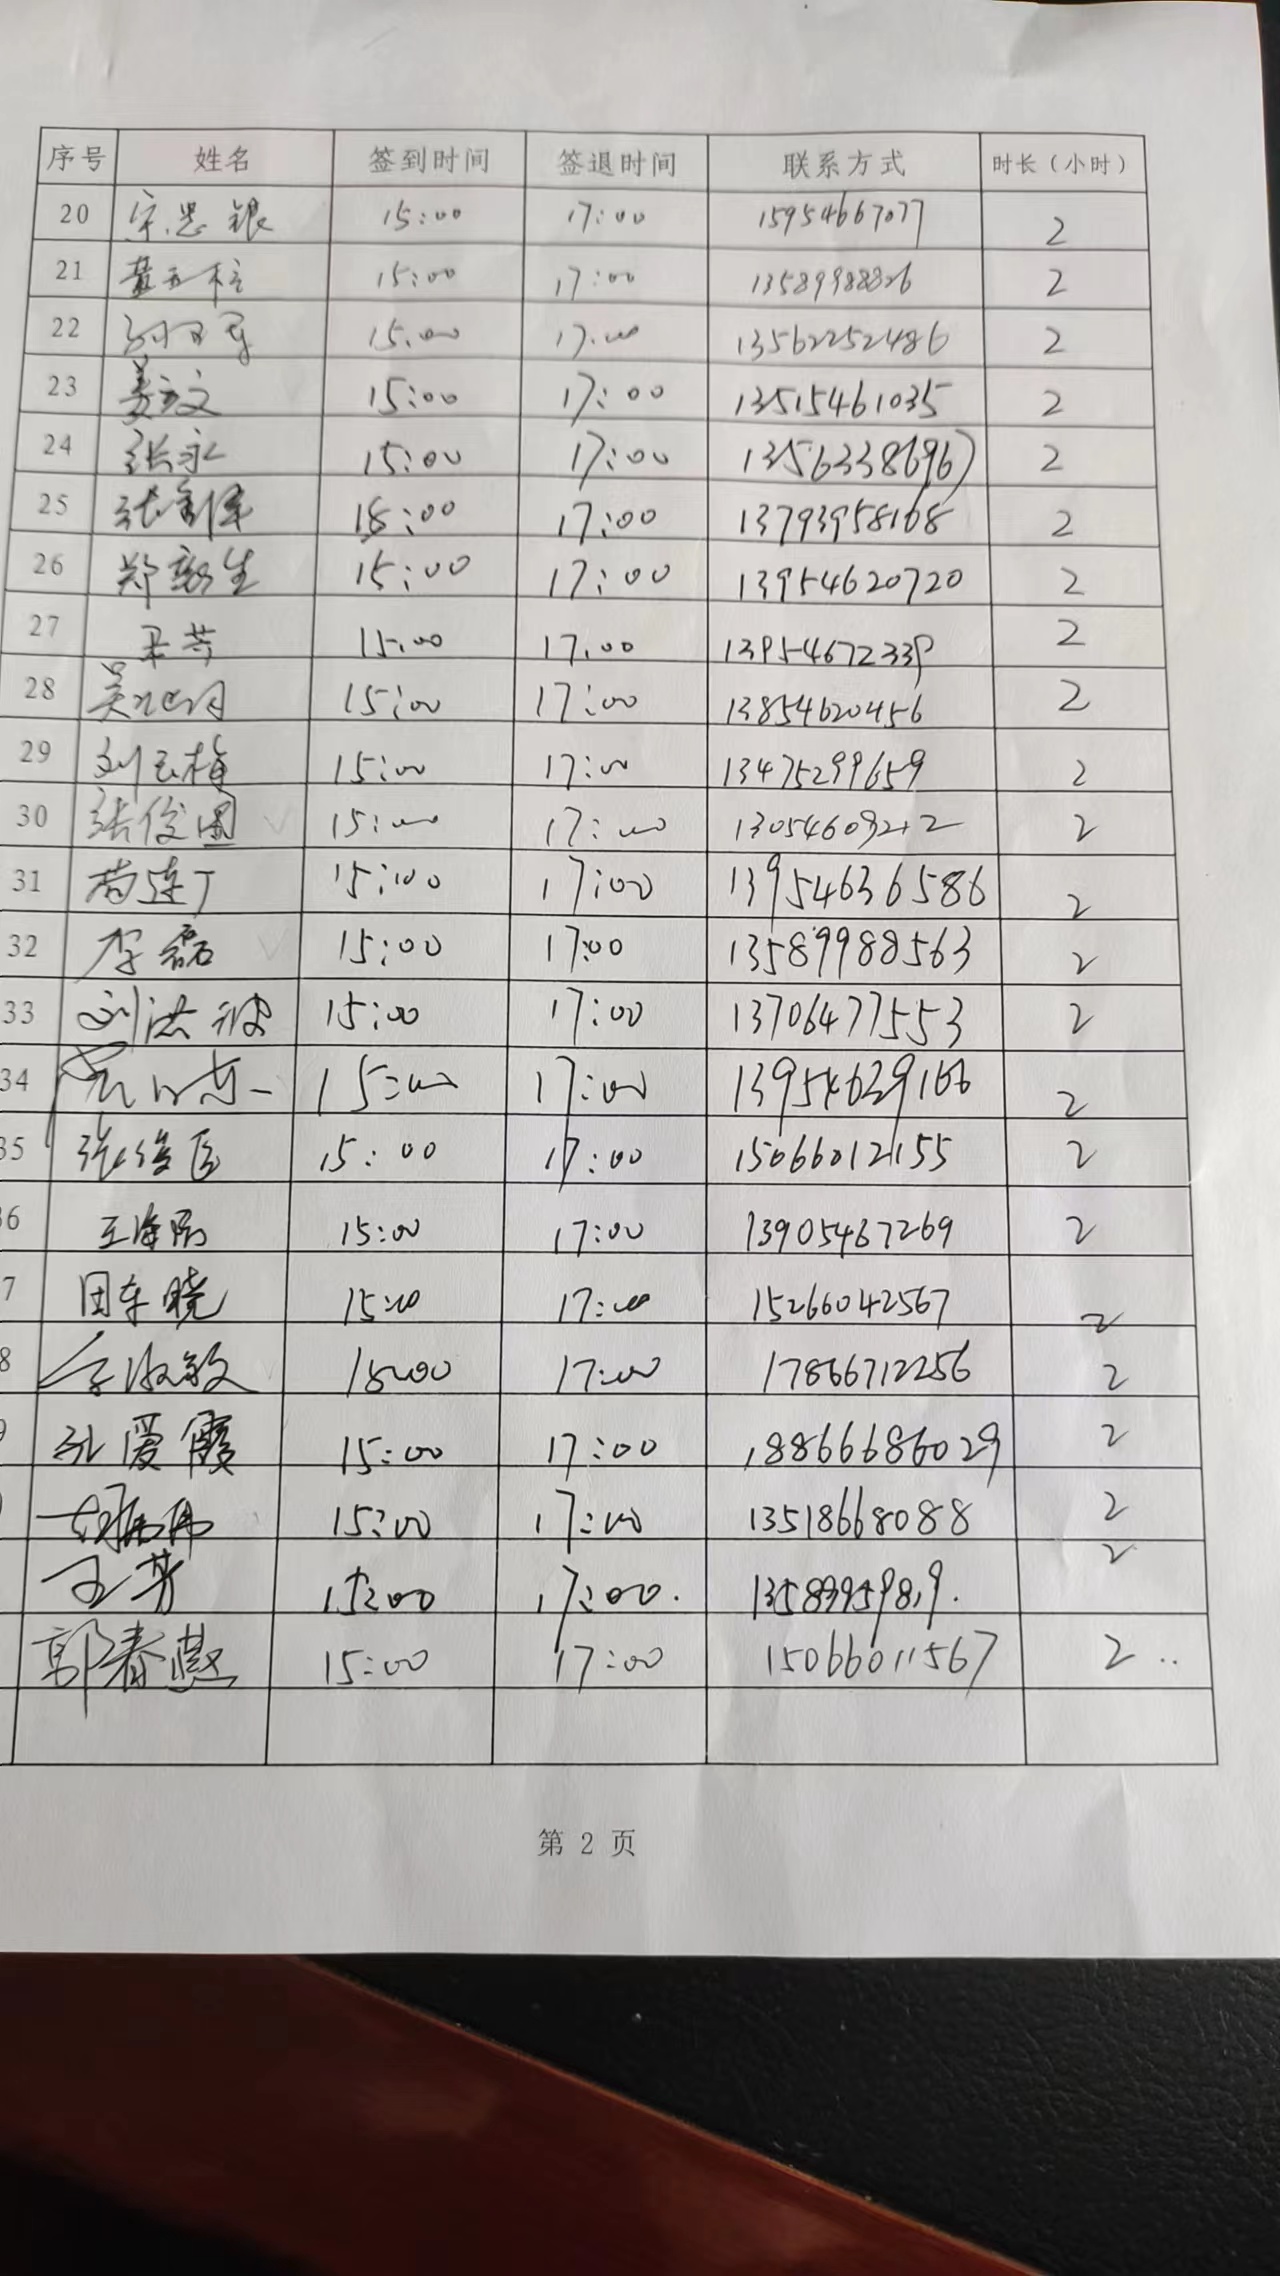 序号 姓名 签到时间 签退时间 联系方式 时长（小时）
20 宋思银 15:00 17:00 15954667077 2
21 15:00 17:00 2
22 15:00 17:00 13562252486 2
23 姜立文 15:00 17:00 13515461035 2
24 张永 15:00 17:00 13563386967 2
25 18:00 17:00 13793958168 2
26 15:00 17:00 13954620720 2
27 15:00 17:00 13954672339 2
28 15:00 17:00 13854620456 2
29 刘玉梅 15:00 17:00 13475299659 2
30 张俊国 15:00 17:00 2
31 苟连丁 15:00 17:00 13954636586 2
32 李磊 15:00 17:00 13589988563 2
33 刘洪波 15:00 17:00 13706477553 2
34 15:00 17:00 13954629166 2
35 15:00 17:00 15066012155 2
36 王海刚 15:00 17:00 13905467269 2
7 田车晓 15:00 17:00 15266042567 2
8 李淑敏 18:00 17:00 17866712256 2
9 张爱霞 15:00 17:00 18866686029 2
15:00 17:00 13518668088 2
王芳 15:00 17:00. 2
郭春燕 15:00 17:00 15066011567 2
第 2 页